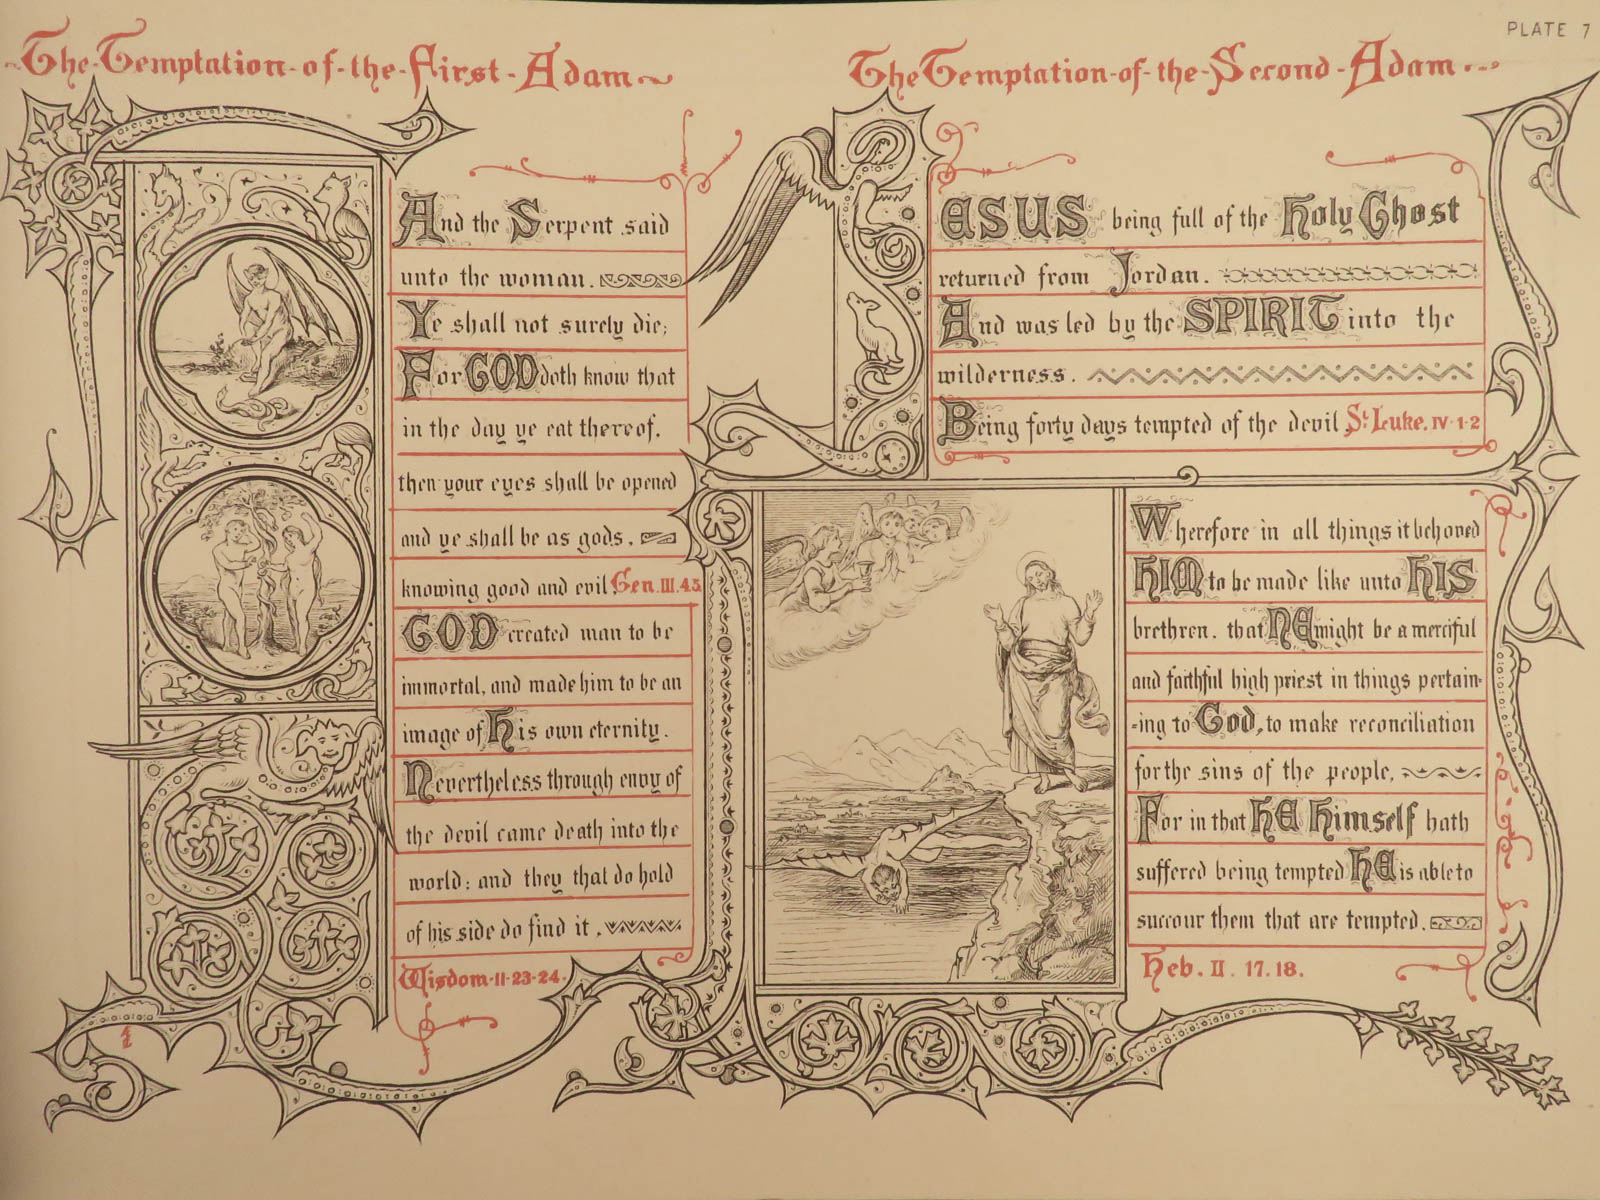 PLATE 7
The Temptation of the First Adam
And the Serpent said
unto the woman.
Ye shall not surely die;
For GOD doth know that
in the day ye eat thereof,
then your eyes shall be opened
and ye shall be as gods,
knowing good and evil. Gen. III. 4.5.
GOD created man to be
immortal, and made him to be an
image of His own eternity.
Nevertheless through envy of
the devil came death into the
world: and they that do hold
of his side do find it.
Wisdom 11-23-24.
The Temptation of the Second Adam
JESUS being full of the Holy Ghost
returned from Jordan.
And was led by the SPIRIT into the
wilderness.
Being forty days tempted of the devil St. Luke. IV. 1-2
Wherefore in all things it behoved
HIM to be made like unto HIS
brethren. that HE might be a merciful
and faithful high priest in things pertain-
-ing to God, to make reconciliation
for the sins of the people,
For in that HE Himself hath
suffered being tempted HE is able to
succour them that are tempted.
Heb. II. 17. 18.